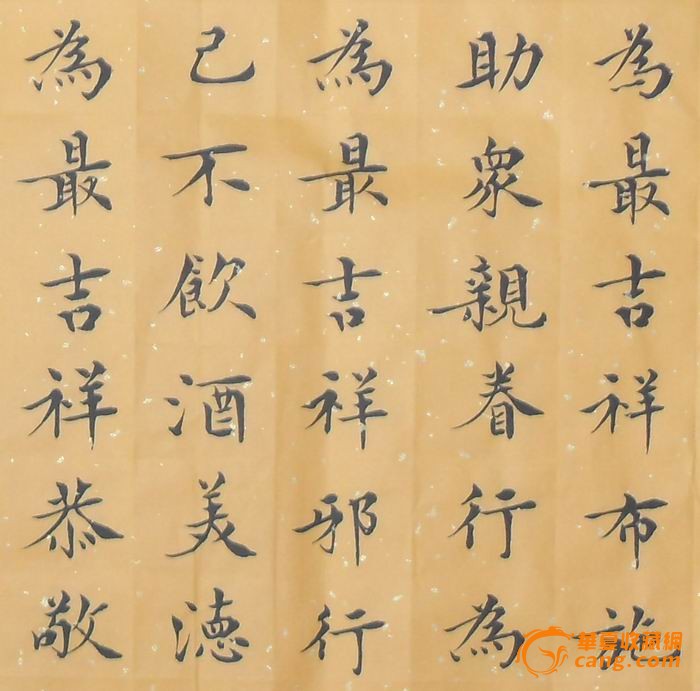 為最吉祥布施
助眾親眷行為
為最吉祥邪行
己不飲酒美德
為最吉祥恭敬
華夏收藏網
cang.com